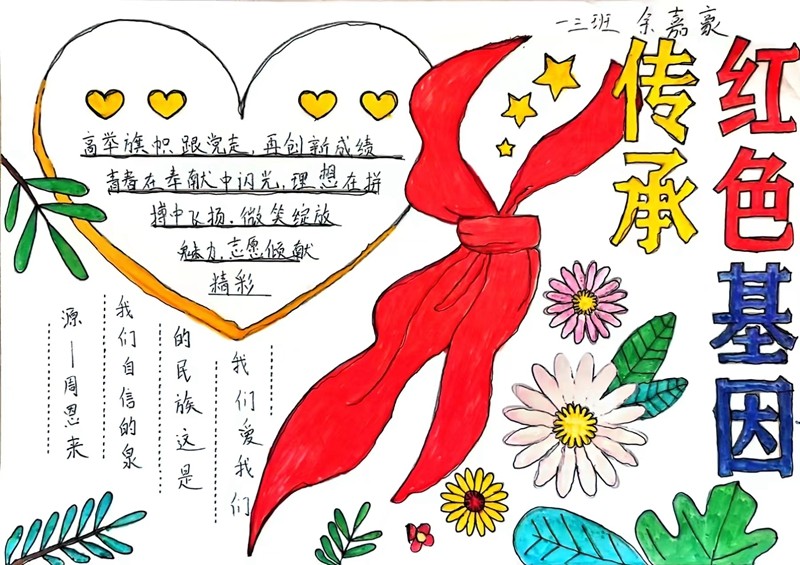 一三班 余嘉豪
红色基因
传承
高举旗帜跟党走,再创新成绩
青春在奉献中闪光,理想在拼
搏中飞扬.微笑绽放
魅力.志愿倾献
精彩
我们爱我们
的民族这是
我们自信的泉
源—周恩来